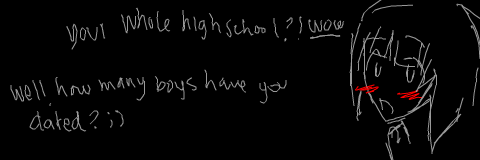 your whole highschool?! wow
well, how many boys have you
dated? ;)